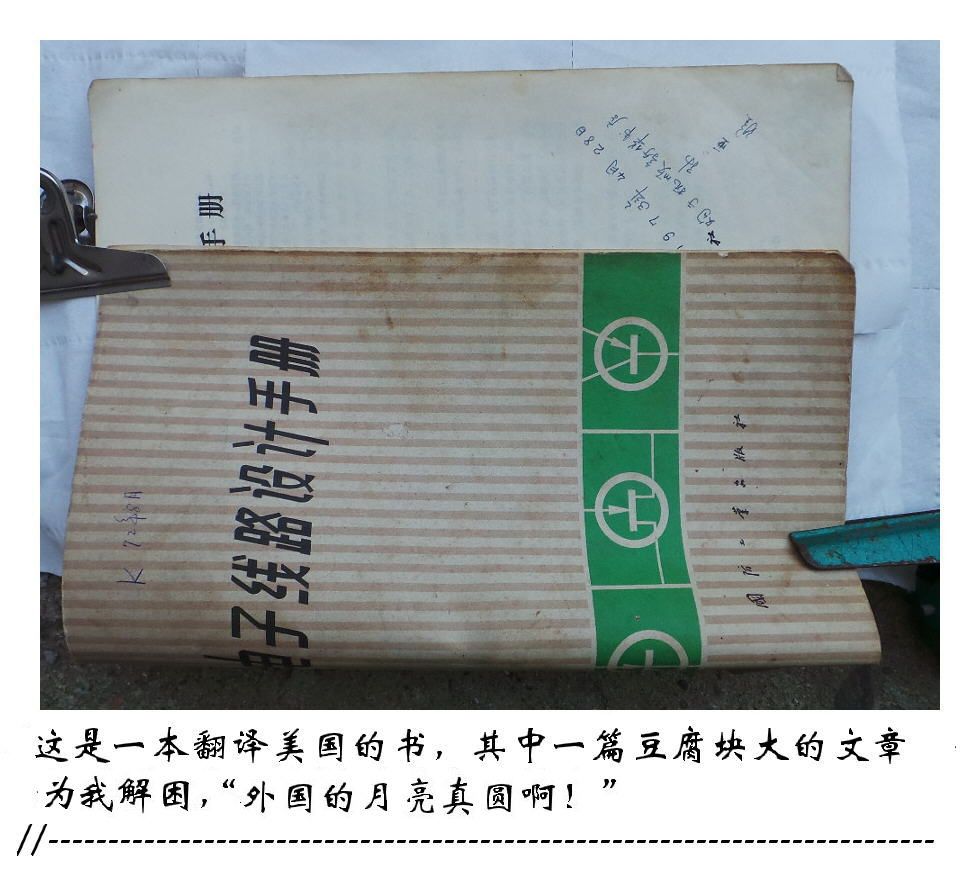 手册
电子线路设计手册
国防工业出版社
K 72年8月
1973年4月28日
这是一本翻译美国的书，其中一篇豆腐块大的文章
为我解困，“外国的月亮真圆啊！”
//